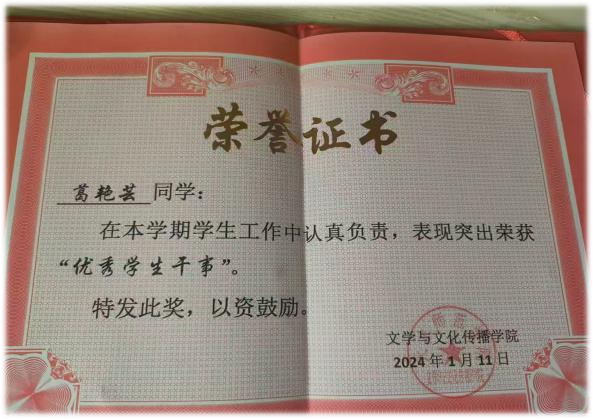 荣誉证书
葛艳芸 同学：
在本学期学生工作中认真负责，表现突出荣获
“优秀学生干事”。
特发此奖，以资鼓励。
文学与文化传播学院
2024 年 1 月 11 日